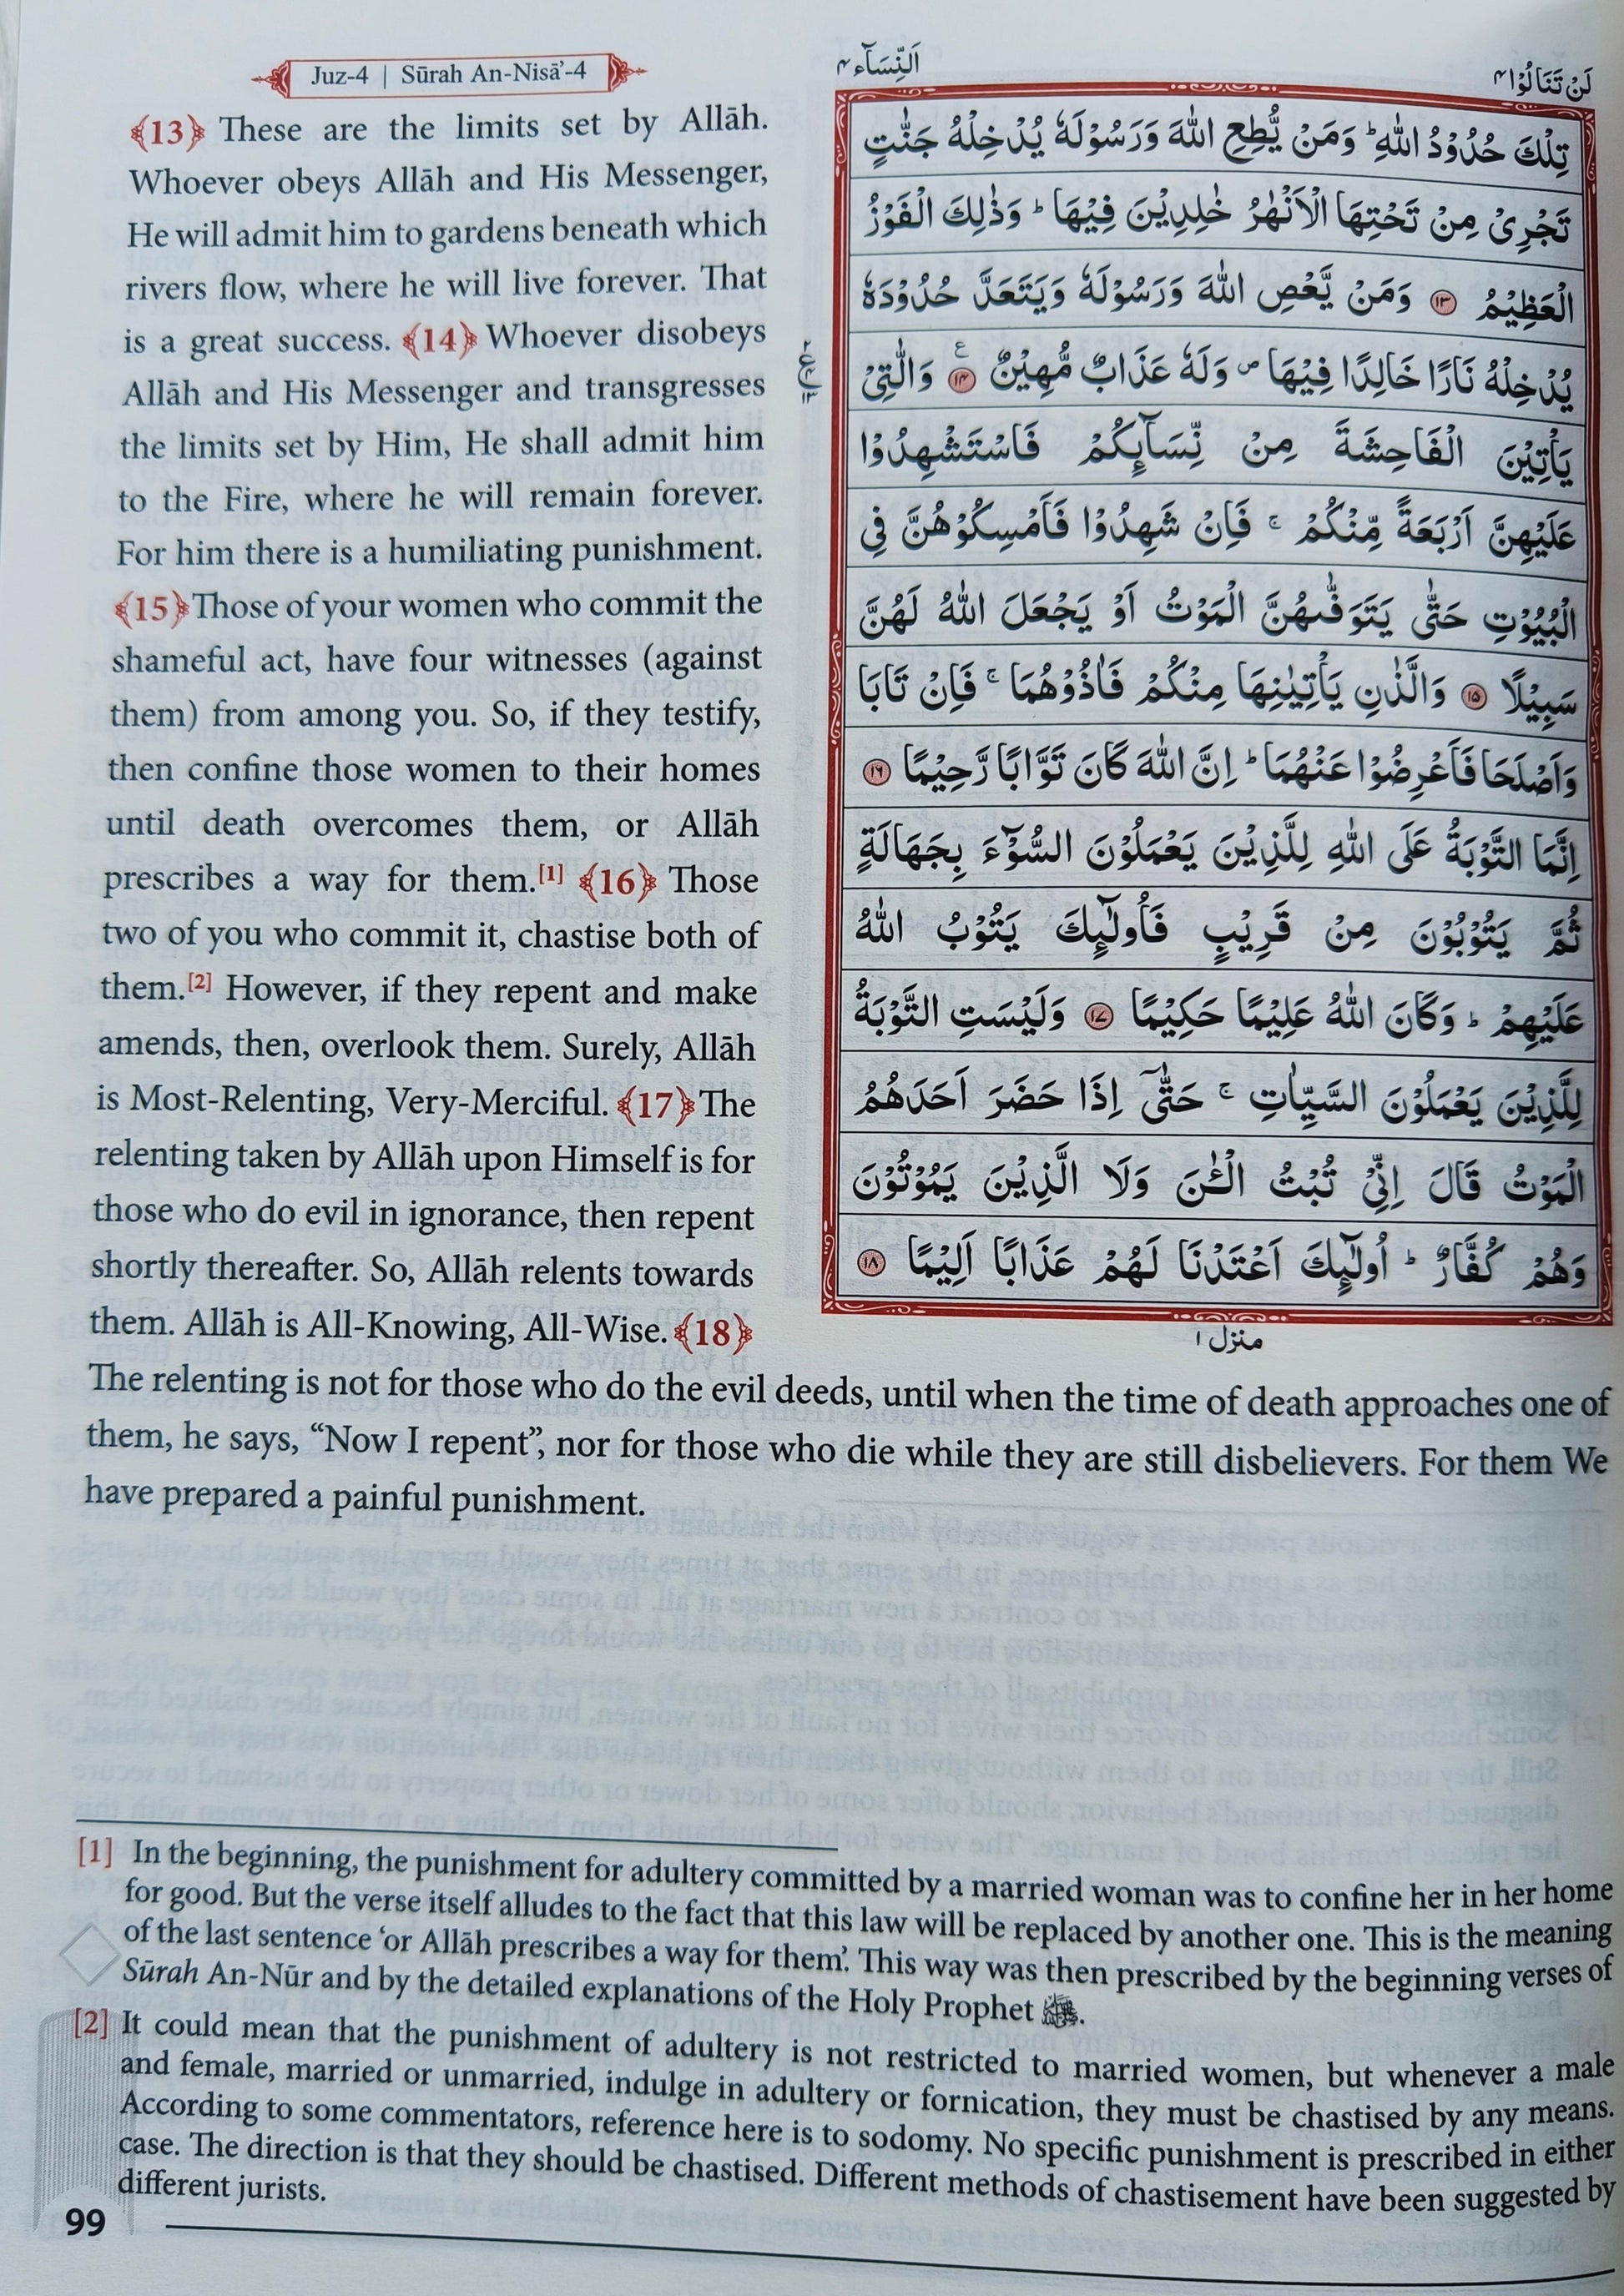 Juz-4 | Sūrah An-Nisā’-4
اَلنِّسَآء ٤
لَنْ تَنَالُوْا ٤
﴾13﴿ These are the limits set by Allāh.
Whoever obeys Allāh and His Messenger,
He will admit him to gardens beneath which
rivers flow, where he will live forever. That
is a great success. ﴾14﴿ Whoever disobeys
Allāh and His Messenger and transgresses
the limits set by Him, He shall admit him
to the Fire, where he will remain forever.
For him there is a humiliating punishment.
﴾15﴿ Those of your women who commit the
shameful act, have four witnesses (against
them) from among you. So, if they testify,
then confine those women to their homes
until death overcomes them, or Allāh
prescribes a way for them.[1] ﴾16﴿ Those
two of you who commit it, chastise both of
them.[2] However, if they repent and make
amends, then, overlook them. Surely, Allāh
is Most-Relenting, Very-Merciful. ﴾17﴿ The
relenting taken by Allāh upon Himself is for
those who do evil in ignorance, then repent
shortly thereafter. So, Allāh relents towards
them. Allāh is All-Knowing, All-Wise. ﴾18﴿
The relenting is not for those who do the evil deeds, until when the time of death approaches one of
them, he says, “Now I repent”, nor for those who die while they are still disbelievers. For them We
have prepared a painful punishment.
تِلْكَ حُدُوْدُ اللّٰهِ ؕ وَمَنْ يُّطِعِ اللّٰهَ وَرَسُوْلَهٗ يُدْخِلْهُ جَنّٰتٍ
تَجْرِىْ مِنْ تَحْتِهَا الْاَنْهٰرُ خٰلِدِيْنَ فِيْهَا ؕ وَذٰلِكَ الْفَوْزُ
الْعَظِيْمُ ۝۱۳ وَمَنْ يَّعْصِ اللّٰهَ وَرَسُوْلَهٗ وَيَتَعَدَّ حُدُوْدَهٗ
يُدْخِلْهُ نَارًا خَالِدًا فِيْهَا ۪ وَلَهٗ عَذَابٌ مُّهِيْنٌ ۝۱۴ وَالّٰتِىْ
يَاْتِيْنَ الْفَاحِشَةَ مِنْ نِّسَآئِكُمْ فَاسْتَشْهِدُوْا
عَلَيْهِنَّ اَرْبَعَةً مِّنْكُمْ ۚ فَاِنْ شَهِدُوْا فَاَمْسِكُوْهُنَّ فِى
الْبُيُوْتِ حَتّٰى يَتَوَفّٰىهُنَّ الْمَوْتُ اَوْ يَجْعَلَ اللّٰهُ لَهُنَّ
سَبِيْلًا ۝۱۵ وَالَّذٰنِ يَاْتِيٰنِهَا مِنْكُمْ فَاٰذُوْهُمَا ۚ فَاِنْ تَابَا
وَاَصْلَحَا فَاَعْرِضُوْا عَنْهُمَا ؕ اِنَّ اللّٰهَ كَانَ تَوَّابًا رَّحِيْمًا ۝۱۶
اِنَّمَا التَّوْبَةُ عَلَى اللّٰهِ لِلَّذِيْنَ يَعْمَلُوْنَ السُّوْٓءَ بِجَهَالَةٍ
ثُمَّ يَتُوْبُوْنَ مِنْ قَرِيْبٍ فَاُولٰٓئِكَ يَتُوْبُ اللّٰهُ
عَلَيْهِمْ ؕ وَكَانَ اللّٰهُ عَلِيْمًا حَكِيْمًا ۝۱۷ وَلَيْسَتِ التَّوْبَةُ
لِلَّذِيْنَ يَعْمَلُوْنَ السَّيِّاٰتِ ۚ حَتّٰىٓ اِذَا حَضَرَ اَحَدَهُمُ
الْمَوْتُ قَالَ اِنِّىْ تُبْتُ الْـٰٔنَ وَلَا الَّذِيْنَ يَمُوْتُوْنَ
وَهُمْ كُفَّارٌ ؕ اُولٰٓئِكَ اَعْتَدْنَا لَهُمْ عَذَابًا اَلِيْمًا ۝۱۸
منزل ۱
[1] In the beginning, the punishment for adultery committed by a married woman was to confine her in her home
for good. But the verse itself alludes to the fact that this law will be replaced by another one. This is the meaning
of the last sentence ‘or Allāh prescribes a way for them’. This way was then prescribed by the beginning verses of
Sūrah An-Nūr and by the detailed explanations of the Holy Prophet ﷺ.
[2] It could mean that the punishment of adultery is not restricted to married women, but whenever a male
and female, married or unmarried, indulge in adultery or fornication, they must be chastised by any means.
According to some commentators, reference here is to sodomy. No specific punishment is prescribed in either
case. The direction is that they should be chastised. Different methods of chastisement have been suggested by
different jurists.
99